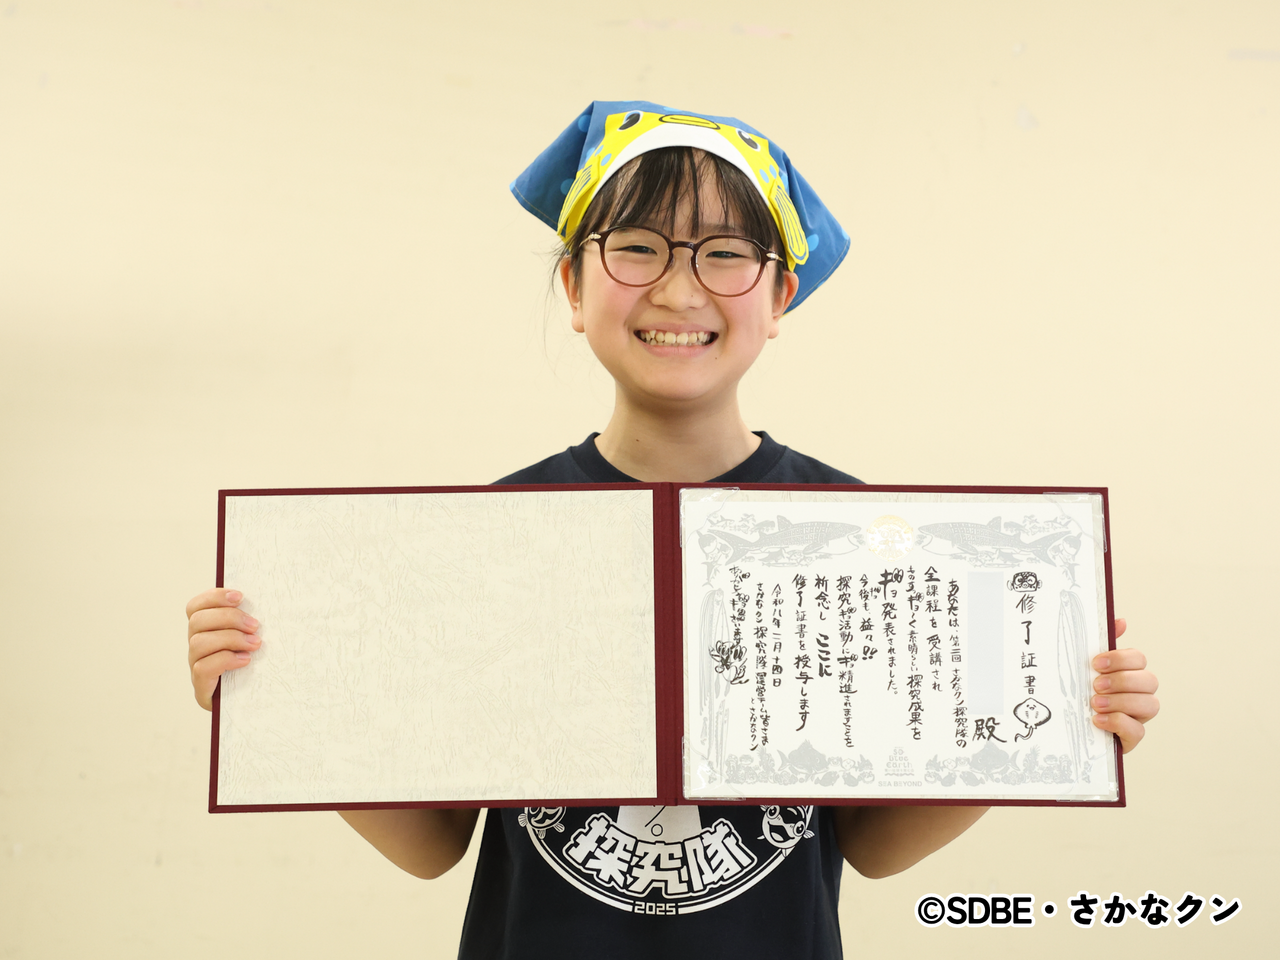 修了証書
殿
あなたは、第二回さかなクン探究隊の
全課程を受講され
すギョーく素晴らしい探究成果を
ギョ発表されました。
今後も、益々!!
探究ギョ活動にギョ精進されますことを
祈念し ここに
修了証書を授与します
令和八年二月十四日
さかなクン探究隊運営チーム皆さま
とさかなクン
探究隊
2025
SEA BEYOND
©SDBE・さかなクン